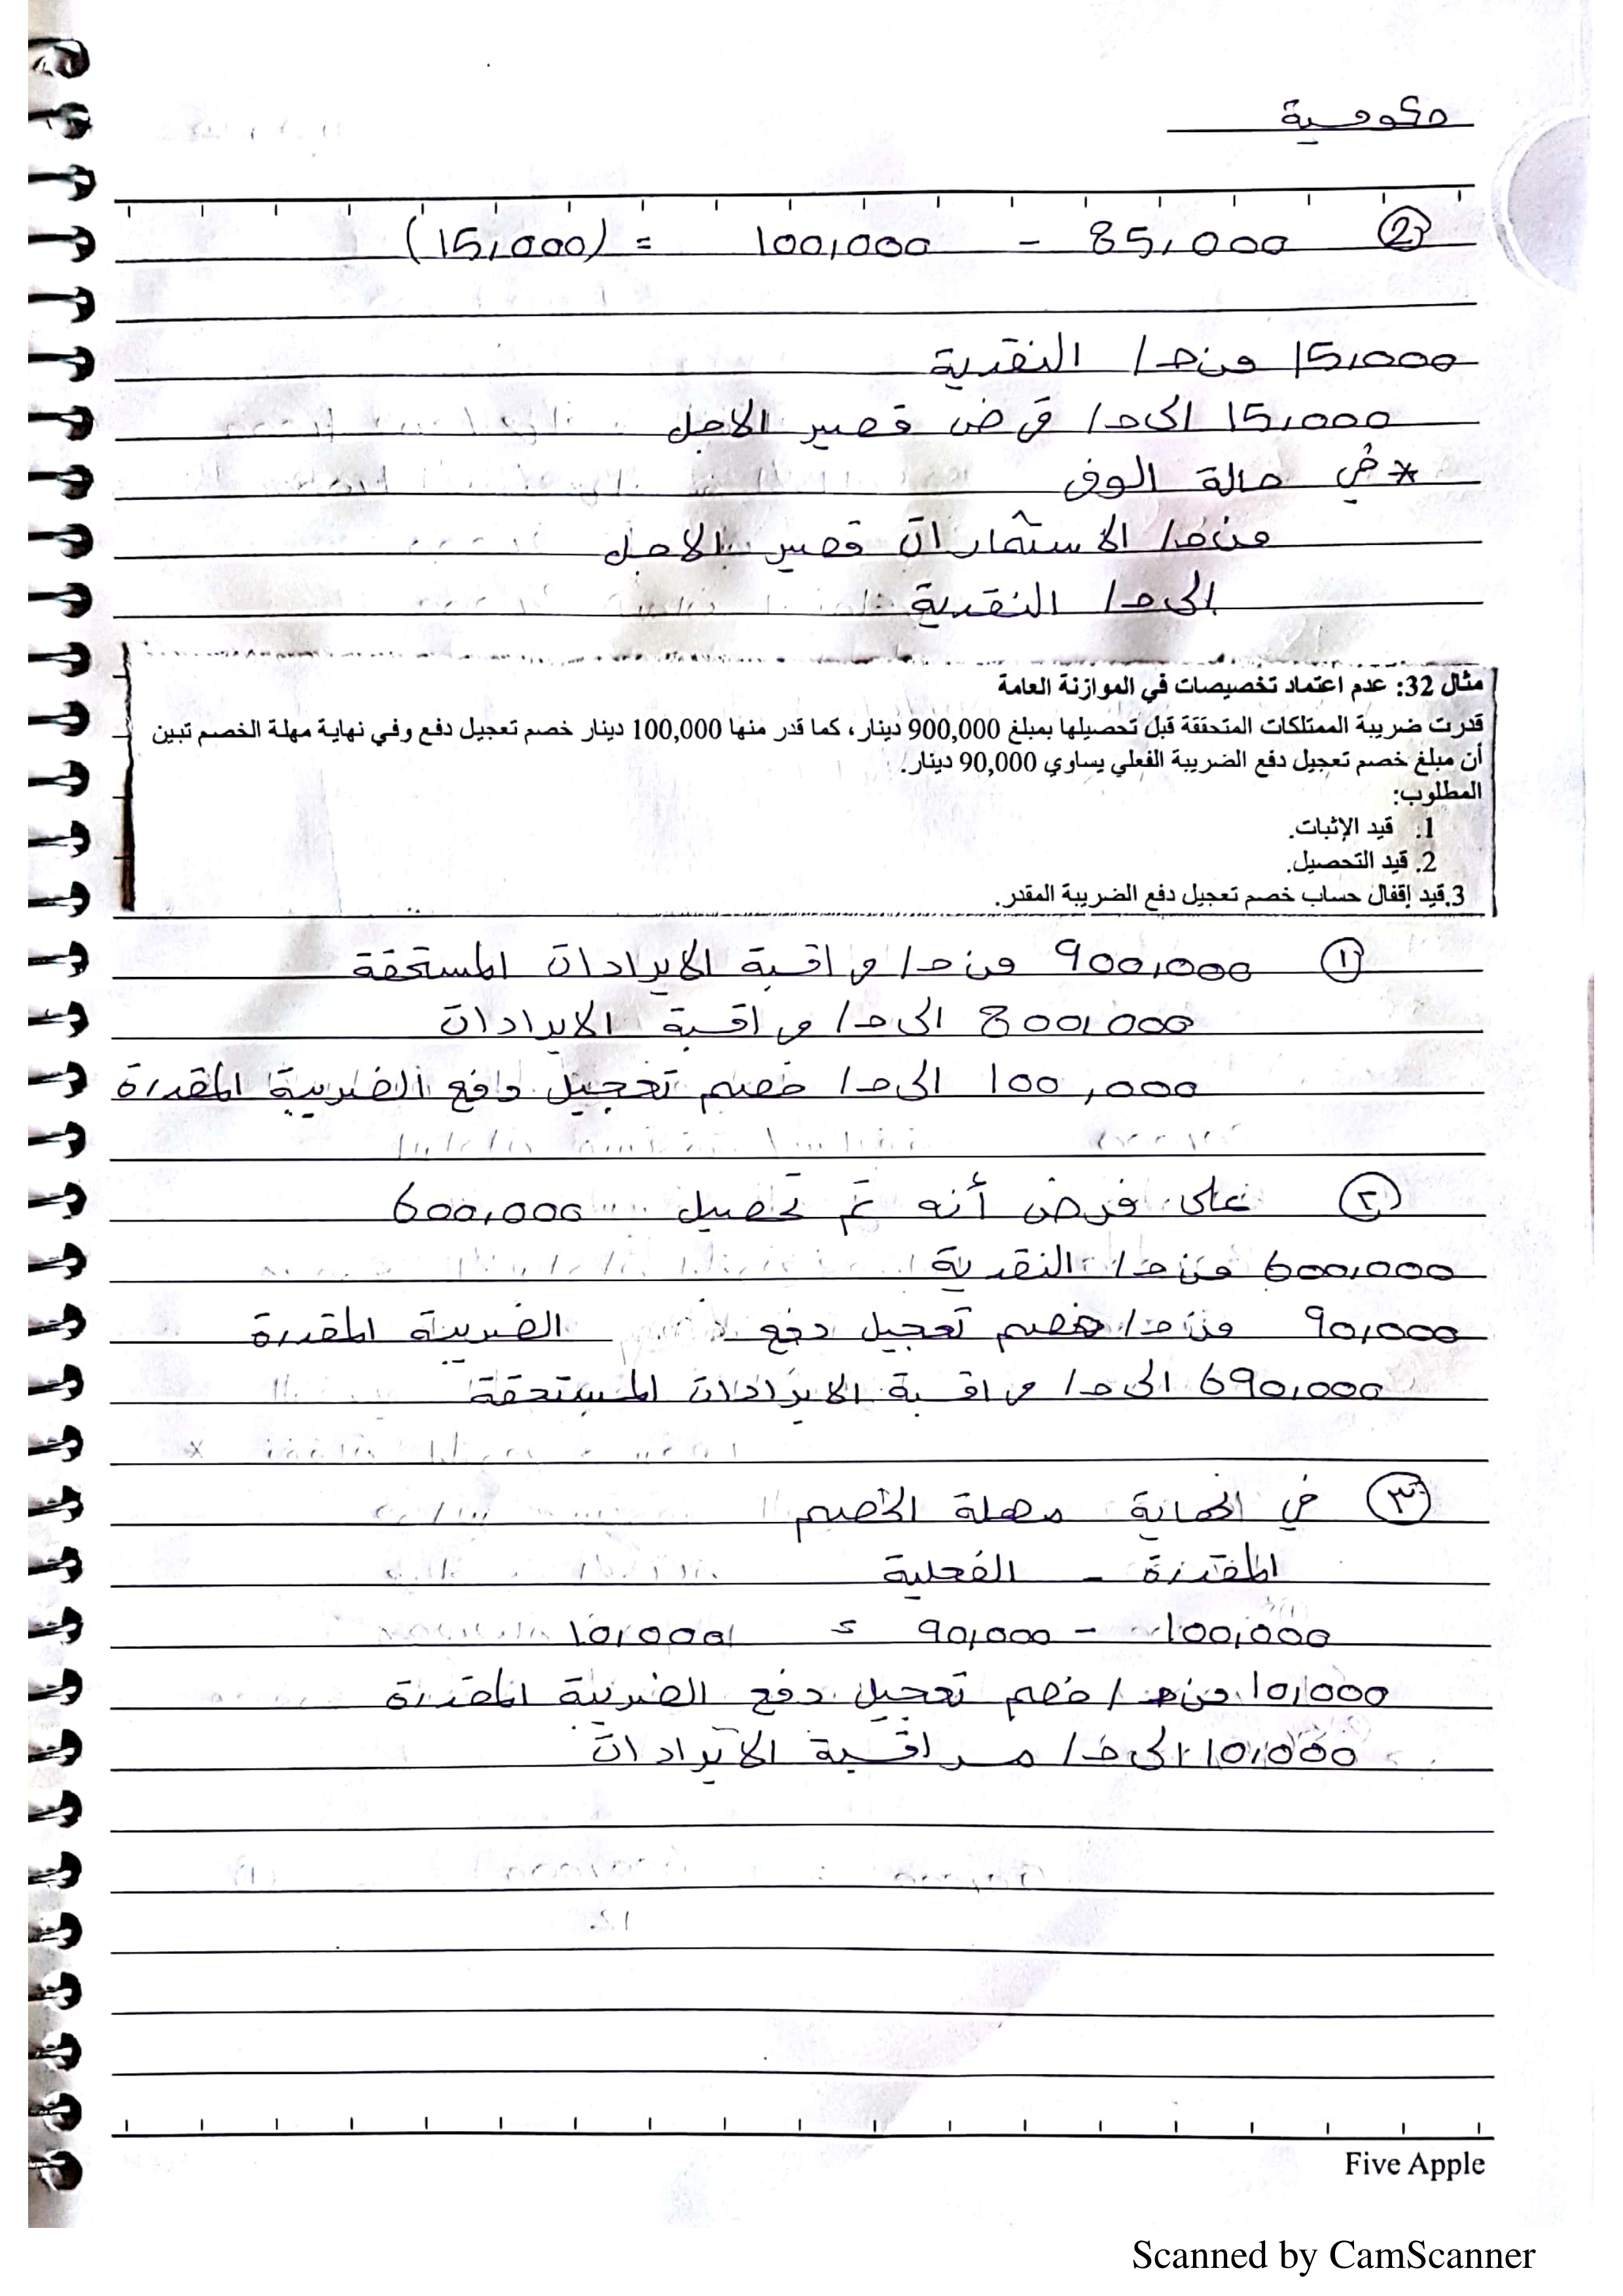 حكومية
② 85,000 - 100,000 = (15,000)
15,000 من حـ/ النقدية
15,000 الى حـ/ قرض قصير الاجل
* في حالة الوفر
من حـ/ الاستثمارات قصير الاجل
الى حـ/ النقدية
مثال 32: عدم اعتماد تخصيصات في الموازنة العامة
قدرت ضريبة الممتلكات المتحققة قبل تحصيلها بمبلغ 900,000 دينار، كما قدر منها 100,000 دينار خصم تعجيل دفع وفي نهاية مهلة الخصم تبين
أن مبلغ خصم تعجيل دفع الضريبة الفعلي يساوي 90,000 دينار.
المطلوب:
1. قيد الإثبات.
2. قيد التحصيل.
3.قيد إقفال حساب خصم تعجيل دفع الضريبة المقدر.
① 900,000 من حـ/ مراقبة الايرادات المستحقة
800,000 الى حـ/ مراقبة الايرادات
100,000 الى حـ/ خصم تعجيل دافع الضريبة المقدرة
② على فرض أنه تم تحصيل 600,000
600,000 من حـ/ النقدية
90,000 من حـ/ خصم تعجيل دفع الضريبة المقدرة
690,000 الى حـ/ مراقبة الايرادات المستحقة
③ في نهاية مهلة الخصم
المقدرة - الفعلية
100,000 - 90,000 = 10,000
10,000 من حـ/ خصم تعجيل دفع الضريبة المقدرة
10,000 الى حـ/ مراقبة الايرادات
Five Apple
Scanned by CamScanner